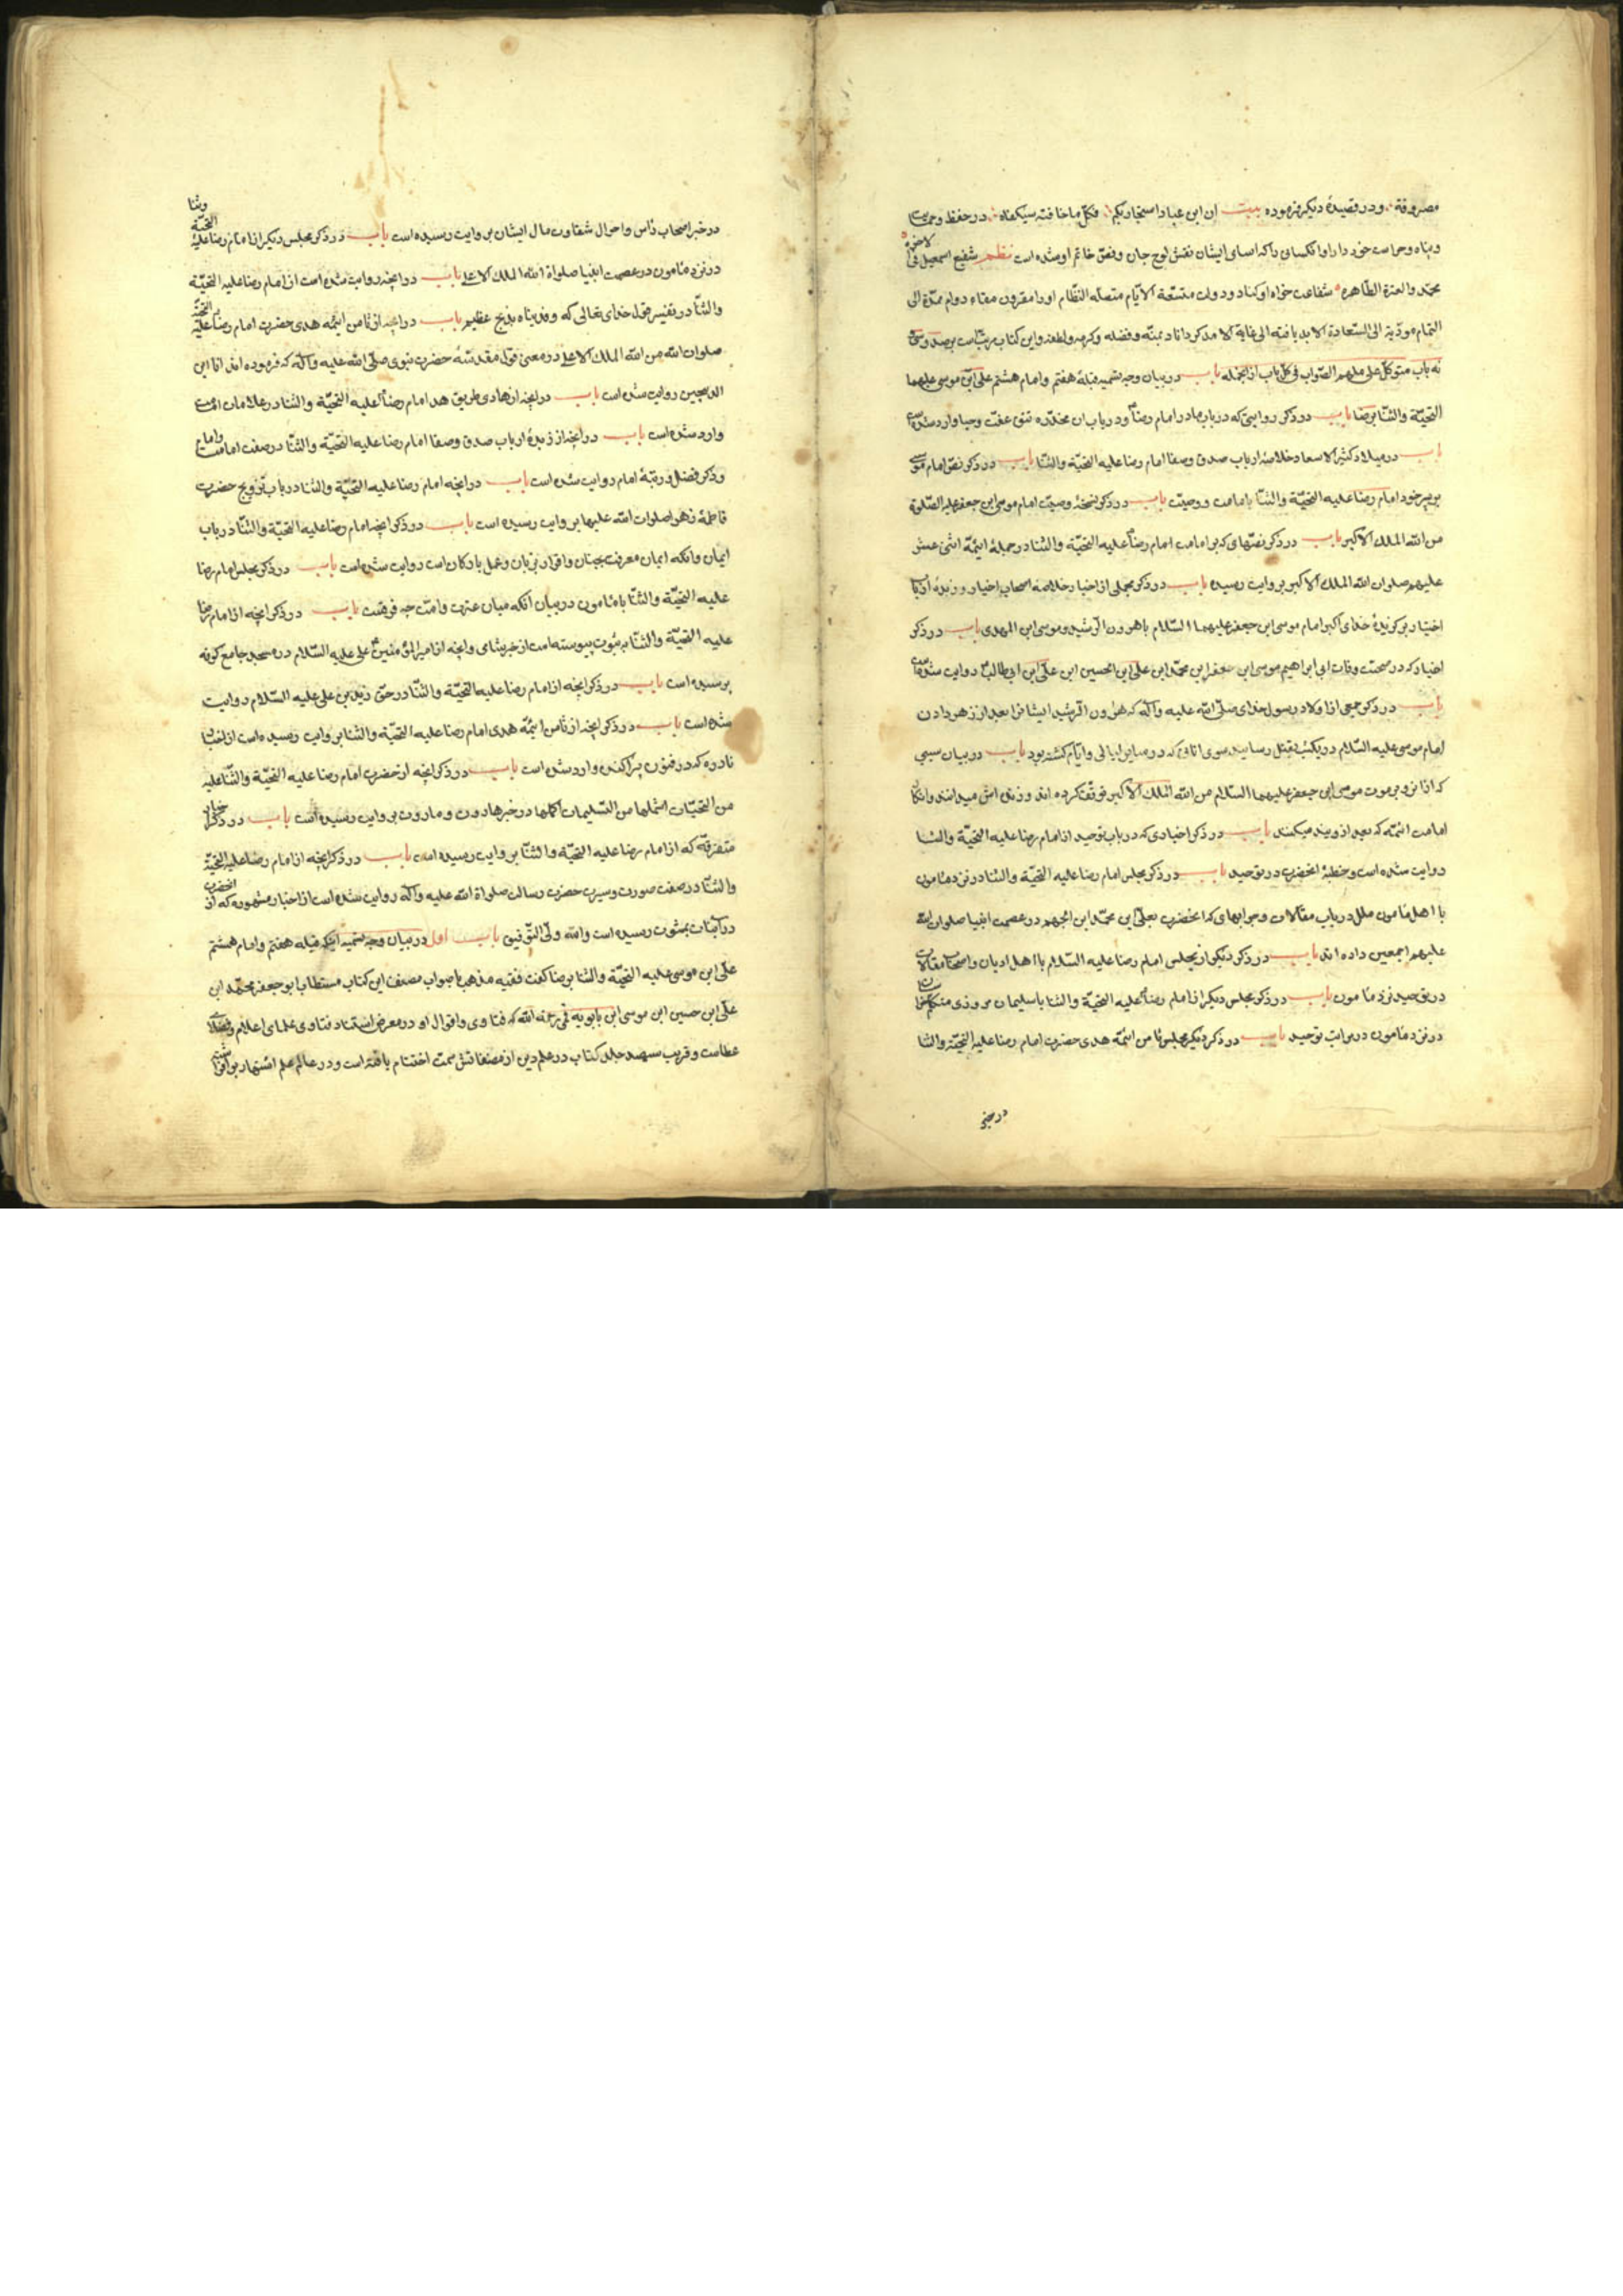 مصروفة ودر قصیدهٔ دیگر فرموده بیت ان ابن عباد استجار بکم فکل ما خافته سیکفاه در حفظ وحمایت
وپناه وحراست خود دارد او آنکسانی را که اسامی ایشان نقش لوح جان وفصّ خاتم او شده است نظم شفیع اسمعیل فی الاخرة
محمّد والعترة الطّاهره شفاعت خواه او کناد ودولت متّسقة الایّام متصلة النّظام او را مقرون بقاء دوام ممدّة الی
التمام مؤدّیة الی السّعادة الابد یافته الی غایة الامد کرداناد بمنّه وفضله وکرمه ولطفه واین کتاب مرتّبست بر صد وسی
نه باب متوکّل علی ملهم الصّواب فی کلّ باب از انجمله باب در بیان وجه تسمیه قبلهٔ هفتم وامام هشتم علی ابن موسی علیهما
التحیّة والثّنا برضا باب در ذکر روایتی که در باب مادر امام رضا ودر باب ان مخدّره تتق عفّت وحیا وارد شده است
باب در میلاد کثیر الاسعاد خلاصهٔ ارباب صدق وصفا امام رضا علیه التحیّة والثنّا باب در ذکر نصّ امام موسی
بر پسر خود امام رضا علیه التحیّة والثنّا بامامت ووصیّت باب در ذکر نسخهٔ وصیّت امام موسی ابن جعفر علیه الصّلوة
من الله الملک الاکبر باب در ذکر نصّهای که بر امامت امام رضا علیه التحیّة والثنا در جملهٔ ائیمّه اثنی عشر
علیهم صلوات الله الملک الاکبر بروایت رسیده باب در ذکر مجملی از اخبار خلاصه اصحاب اخیار وزبدهٔ ارباب
اختیار برکزیدهٔ خدای اکبر امام موسی ابن جعفر علیهما السّلام با هرون الرّشید وموسی ابن المهدی باب در ذکر
اخبار که در صحّت وفات ابی ابراهیم موسی ابن جعفر ابن محمّد ابن علی ابن الحسین ابن علی ابن ابی طالب روایت شده است
باب در ذکر جمعی از اولاد رسول خدای صلّی الله علیه وآله که هرون الرّشید ایشانرا بعد از زهر دادن
امام موسی علیه السّلام در یکشب بقتل رسانید سوی انانی که در سایر لیالی وایّام کشته بود باب در بیان سببی
که از انرو بر موت موسی ابن جعفر علیهما السّلام من الله الملک الاکبر توقّف کرده اند وزنده اش میدانند وانکار
امامت ائمّه که بعد از ویند میکنند باب در ذکر اخباری که در باب توحید از امام رضا علیه التحیّة والثنا
روایت شده است وخطبهٔ انحضرت در توحید باب در ذکر مجلس امام رضا علیه التحیّة والثنا در نزد مأمون
با اهل ملل در باب مقالات وجوابهای که انحضرت بعلی ابن محمّد ابن الجهم در عصمت انبیا صلوات الله
علیهم اجمعین داده اند باب در ذکر دیگر از مجلس امام رضا علیه السّلام با اهل ادیان واصحاب مقالات
در توحید نزد مأمون باب در ذکر مجلس دیگر از امام رضا علیه التحیّة والثنا با سلیمان مروزی متکلّم خراسان
در نزد مأمون در باب توحید باب در ذکر دیگر مجلس ثامن ائمّه هدی حضرت امام رضا علیه التحیّة والثنا
در خبر
در خبر اصحاب رأس واحوال شقاوت مال ایشان بروایت رسیده است باب در ذکر مجلس دیگر از امام رضا علیه التحیّة وثنا
در نزد مأمون در عصمت انبیا صلواة الله الملک الاعلی باب در انچه روایت شده است از امام رضا علیه التحیّة
والثنّا در تفسیر قول خدای تعالی که وفدیناه بذبح عظیم باب در انچه از ثامن ائیمّه هدی حضرت امام رضا علیه التحیّة
صلوات الله من الله الملک الاعلی در معنی قول مقدّسهٔ حضرت نبوی صلّی الله علیه وآله که فرموده اند انا ابن
الذبیحین روایت شده است باب در انچه از هادی طریق هدا امام رضا علیه التحیّة والثنا در علامات امامت
وارد شده است باب در انچه از زبدهٔ ارباب صدق وصفا امام رضا علیه التحیّة والثنّا در صفت امامت وامام
وذکر فضل ورتبهٔ امام روایت شده است باب در انچه امام رضا علیه التحیّة والثنا در باب تزویج حضرت
فاطمهٔ زهرا صلوات الله علیها بروایت رسیده است باب در ذکر انچه امام رضا علیه التحیّة والثنّا در باب
ایمان وانکه ایمان معرفت بجنان واقرار بزبان وعمل بارکان است روایت شده است باب در ذکر مجلس امام رضا
علیه التحیّة والثنّا با مأمون در بیان انکه میان عترت وامّت چه فرقست باب در ذکر انچه از امام رضا
علیه التحیّة والثنّا بثبوت پیوسته است از خبر شامی وانچه از امیر المؤمنین علی علیه السّلام در مسجد جامع کوفه
پرسیده است باب در ذکر انچه از امام رضا علیه التحیّة والثنّا در حقّ زید بن علی علیه السّلام روایت
شده است باب در ذکر انچه از ثامن ائیمّه هدی امام رضا علیه التحیّة والثنا بروایت رسیده است از اخبار
نادره که در فنون پراکنده وارد شده است باب در ذکر انچه از حضرت امام رضا علیه التحیّة والثنّا علیه
من التحیّات اشملها من التّسلیمات اکملها در خبر هاروت وماروت بروایت رسیده است باب در ذکر اخبار
متفرّقه که از امام رضا علیه التحیّة والثنّا بروایت رسیده است باب در ذکر انچه از امام رضا علیه التحیّة
والثنّا در صفت صورت وسیرت حضرت رسالت صلواة الله علیه وآله روایت شده است از اخبار مشهوره که از انحضرت
در اثبات بثبوت رسیده است والله ولیّ التّوفیق باب اول در بیان وجه تسمیه اینکه قبله هفتم وامام هشتم
علی ابن موسی علیه التحیّة والثنا برضا گفت فقیه مذهب باصواب مصنف این کتاب مستطاب ابو جعفر محمّد ابن
علی ابن حسین ابن موسی ابن بابویه قمی رحمه الله که فتاوی واقوال او در معرض استناد فتاوی علمای اعلام وفضلای
عظامست وقریب سیصد جلد کتاب در علم دین از مصنفاتش سمت اختتام یافته است ودر عالم علم اشتهار